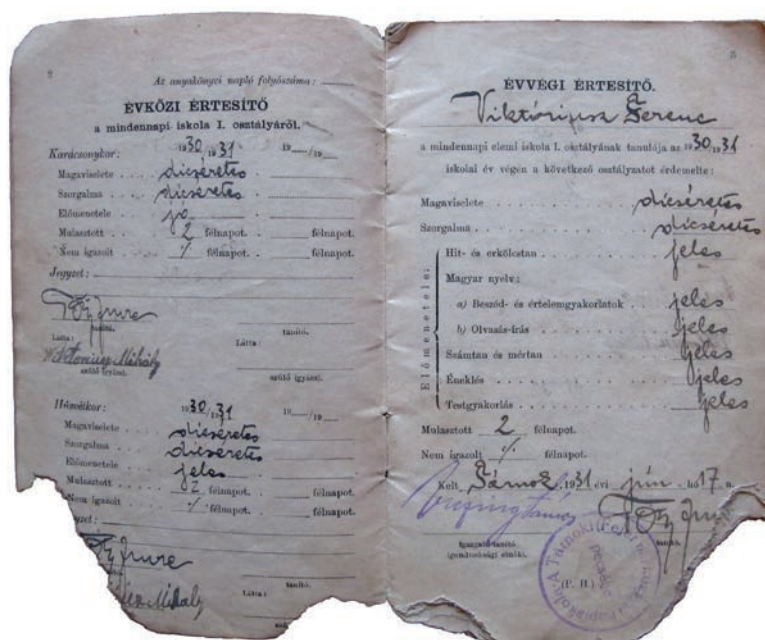 2
Az anyakönyvi napló folyószáma :
ÉVKÖZI ÉRTESÍTŐ
a mindennapi iskola I. osztályáról.
Karácsonykor : 1930/1931 19__/19__
Magaviselete . . . . dicséretes
Szorgalma . . . . dicséretes
Előmenetele . . . . jó
Mulasztott . . . . 2 félnapot. . félnapot.
Nem igazolt . . . ٪ félnapot. . félnapot.
Jegyzet :
Imre
tanító. tanító.
Látta : Látta :
Mihály
szülő (gyám). szülő (gyám).
Húsvétkor : 1930/1931 19__/19__
Magaviselete . . . . dicséretes
Szorgalma . . . . dicséretes
Előmenetele . . . . jeles
Mulasztott . . . . 2 félnapot. . félnapot.
Nem igazolt . . . ٪ félnapot. . félnapot.
Imre
tanító.
Mihály
Látta :
3
ÉVVÉGI ÉRTESÍTŐ.
Viktóriusz Ferenc
a mindennapi elemi iskola I. osztályának tanulója az 1930/1931
iskolai év végén a következő osztályzatot érdemelte :
Magaviselete dicséretes
Szorgalma dicséretes
Előmenetele:
Hit- és erkölcstan jeles
Magyar nyelv :
a) Beszéd- és értelemgyakorlatok jeles
b) Olvasás-írás jeles
Számtan és mértan jeles
Éneklés jeles
Testgyakorlás jeles
Mulasztott 2 félnapot.
Nem igazolt ٪ félnapot.
Kelt, Tárnok, 1931 évi jún. hó 17 n.
igazgató-tanító tanító.
(gondnoksági elnök).
(P. H.)